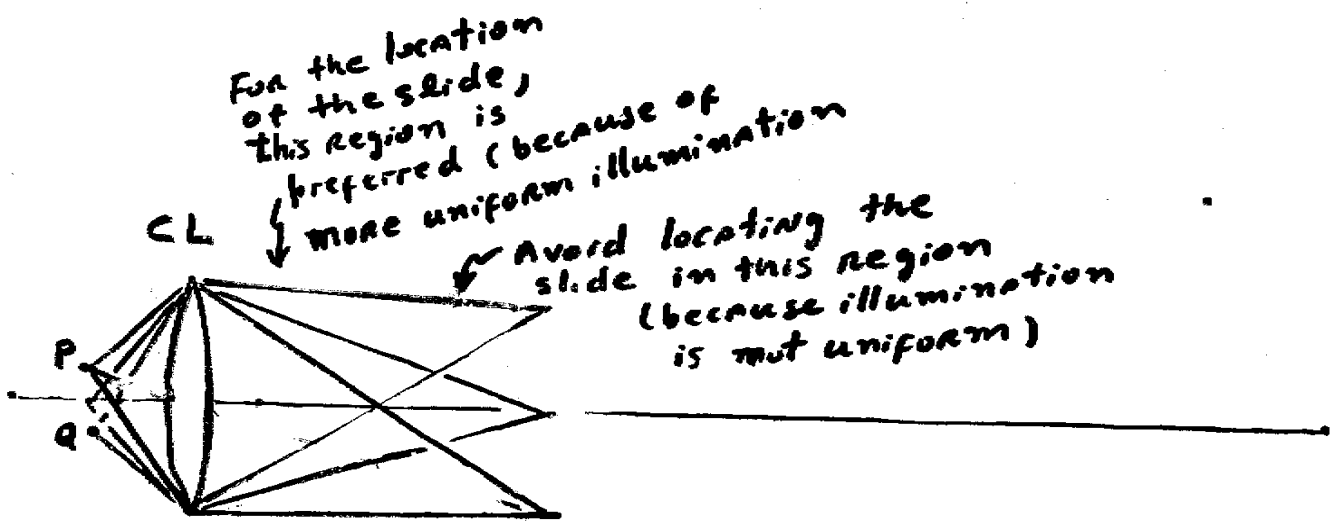 For the location
of the slide,
this region is
preferred (because of
more uniform illumination
CL
Avoid locating the
slide in this region
(because illumination
is not uniform)
P
Q